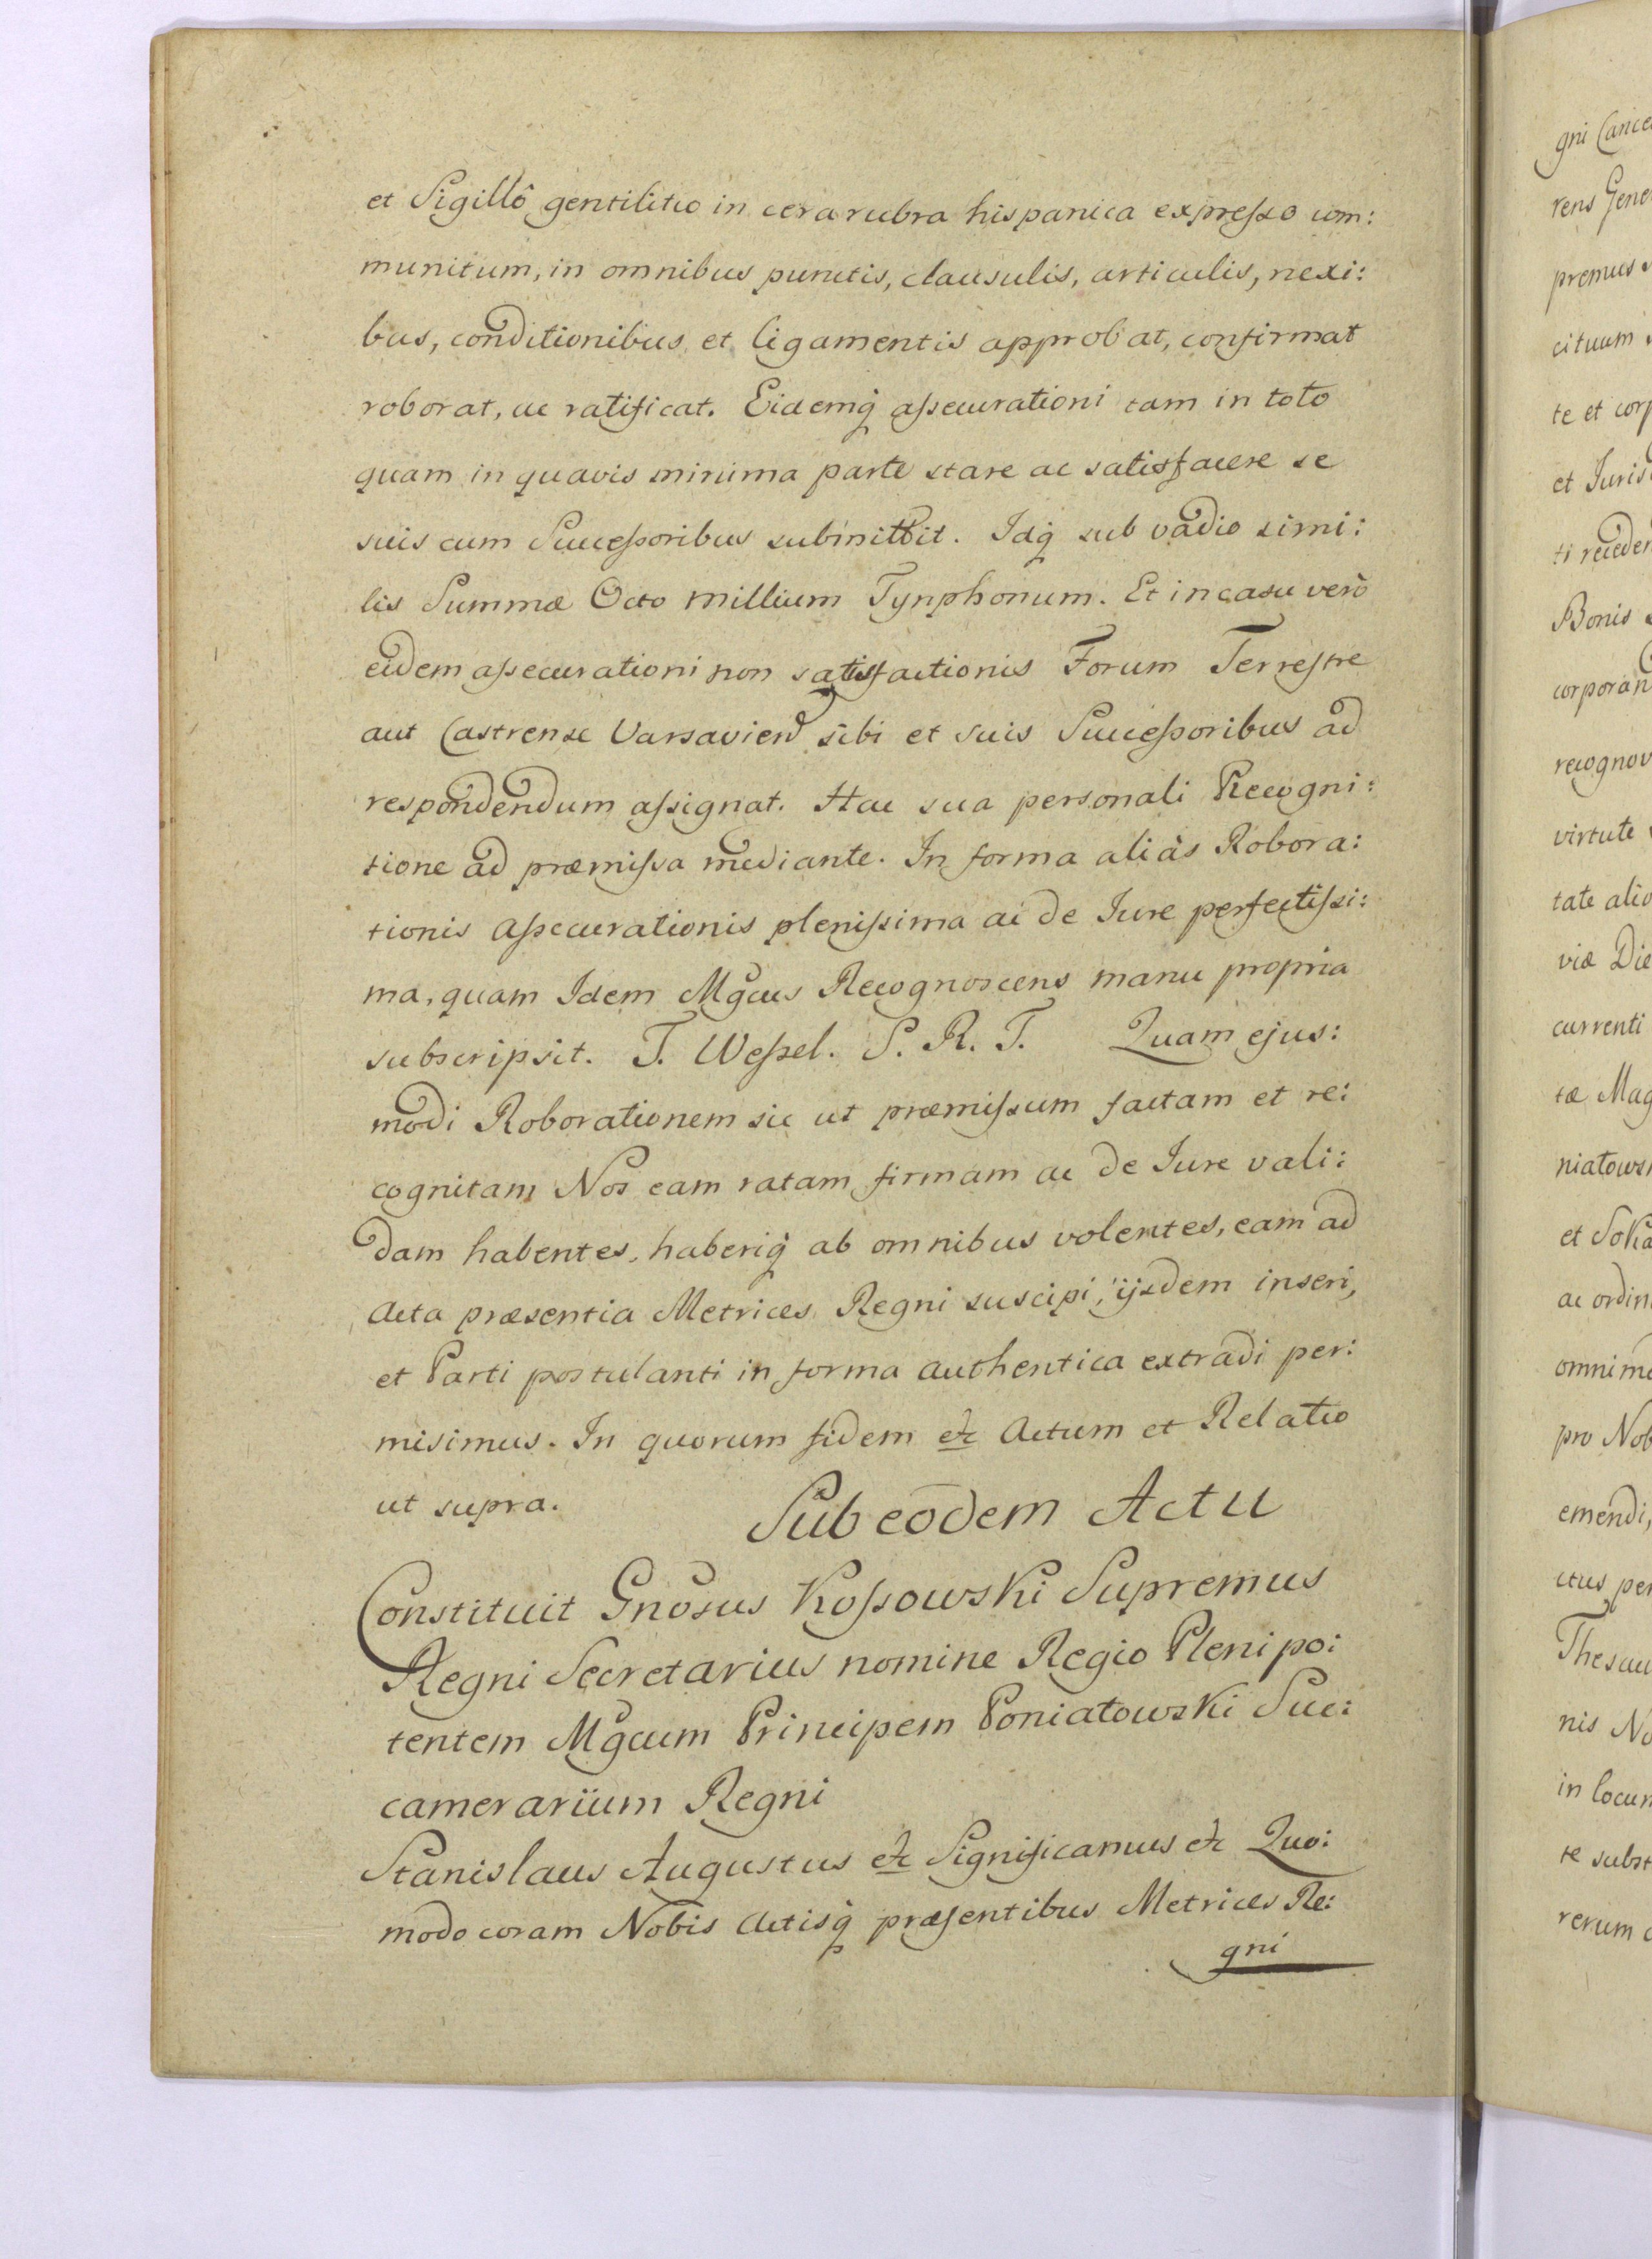 et Sigillô gentilitio in cera rubra hispanica expreſso com:
munitum, in omnibus punctis, clausulis, articulis, nexi:
bus, conditionibus et ligamentis approbat, confirmat
roborat, ac ratificat. Eidemq̇ aſsecurationi tam in toto
quam in quavis minima parte stare ac satisfacere se
suis cum Succeſsoribus submittit. Idq̇ sub vadio simi:
lis Summæ Octo millium Tynphonum. Et in casu verò
eidem aſsecurationi non satisfactionis Forum Terreſtre
aut Castrense Varsavien̄ sibi et suis Succeſsoribus ad
respondendum aſsignat. Hac sua personali Recogni:
tione ad præmiſsa mediante. In forma aliàs Robora:
tionis Aſsecurationis pleniſsima ac de Iure perfectiſsi:
ma, quam Idem Mgcus Recognoscens manu propria
subscripsit. T. Weſsel. P. R. T. Quam ejus:
modi Roborationem sic ut præmiſsum factam et re:
cognitam Nos eam ratam firmam ac de Iure vali:
dam habentes, haberiq̇ ab omnibus volentes, eam ad
Acta præsentia Metrices Regni suscipi, ijsdem inseri,
et Parti postulanti in forma authentica extradi per:
misimus. In quorum fidem &c Actum et Relatio
ut supra.
Sub eodem Actu
Constituit Gnōsus Koſsowski Supremus
Regni Secretarius nomine Regio Plenipo:
tentem Mgcum Principem Poniatowski Suc:
camerarium Regni
Stanislaus Augustus &c Significamus &c Quo:
modo coram Nobis Actisq̇ præſentibus Metrices Re:
gni
gni Cance
rens Gene
premus
cituum
te et corp
et Juris
ti receden
Bonis
corporan
recognov
virtute
tate alio
viæ Die
currenti
tæ Mag
niatows
et Solia
ac ordin
omnimo
pro Nob
emendi,
ctus per
Thesau
nis No
in locum
te subst
rerum